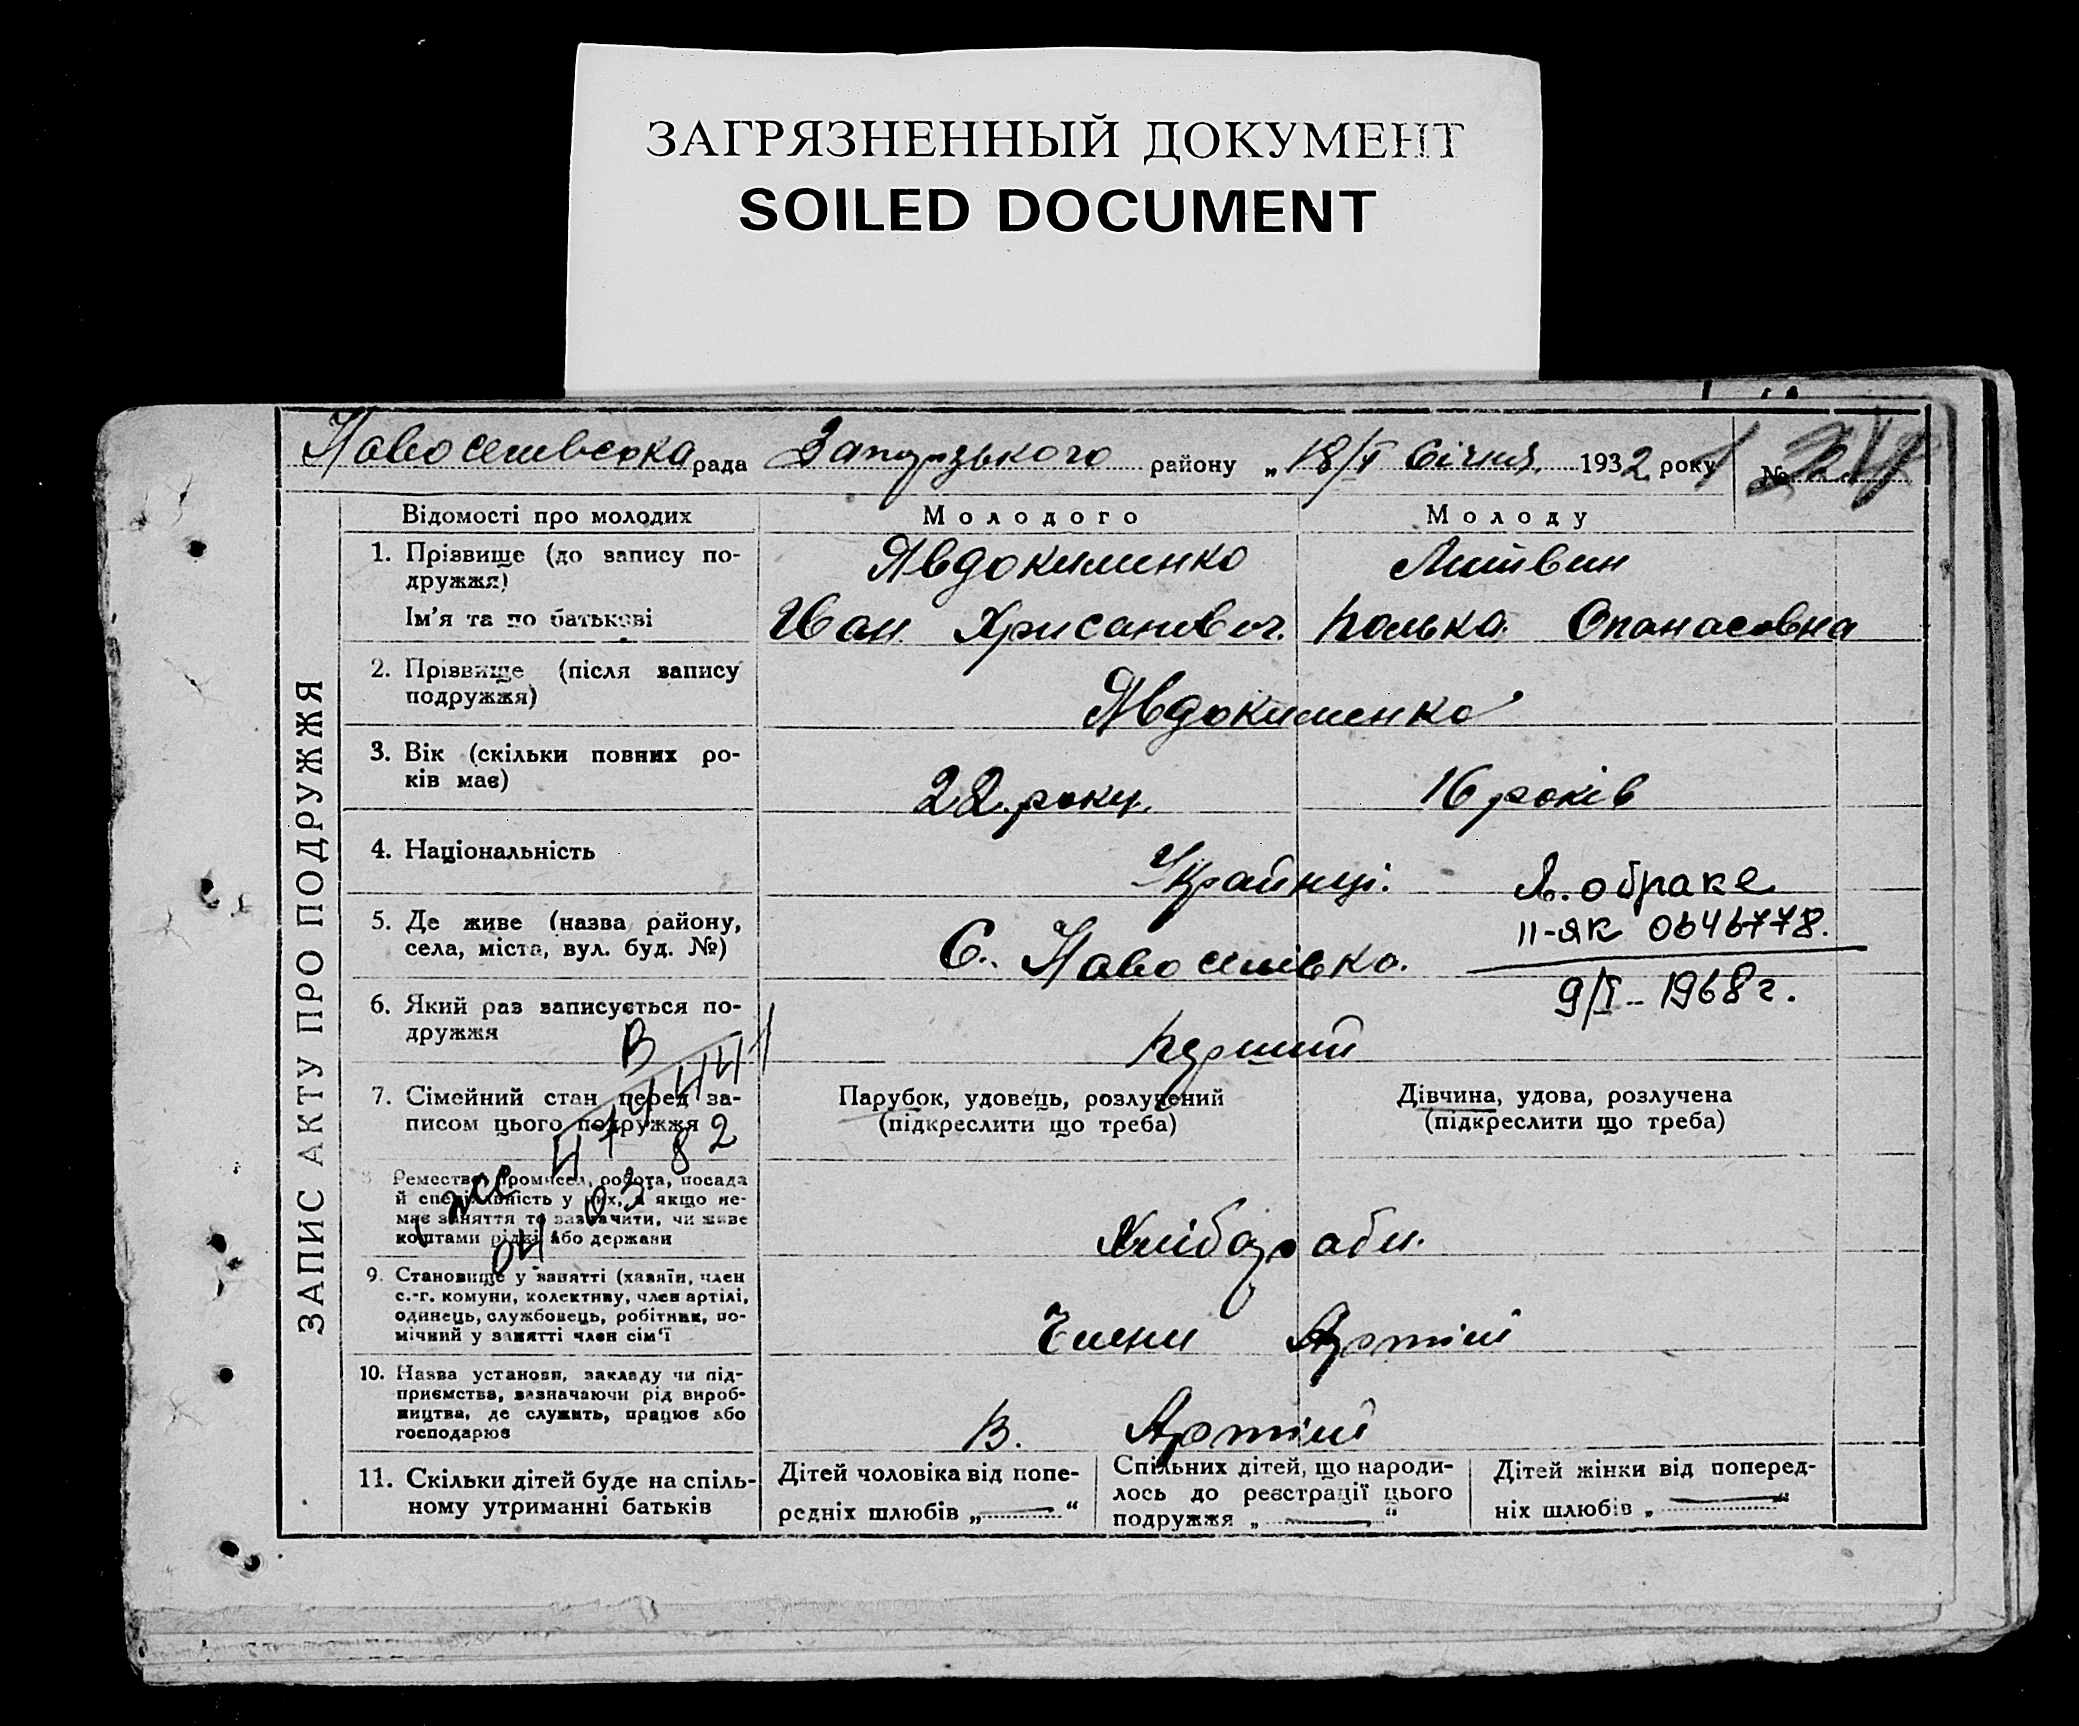 ЗАГРЯЗНЕННЫЙ ДОКУМЕНТ
SOILED DOCUMENT
Новоселівсока рада Запорізького району „18/I Січня 1932 року №
ЗАПИС АКТУ ПРО ПОДРУЖЖЯ
Відомості про молодих Молодого Молоду
1. Прізвище (до запису по-
дружжя)
Явдокименко Литвин
Ім'я та по батькові Иван Хрисанович. Полька Опанасовна
2. Прізвище (після запису
подружжя)
Явдокименко
3. Вік (скільки повних ро-
ків має)
22 роки. 16 років
4. Національність Українці.
Св. о браке
II-ЯК 0646778.
9/I - 1968 г.
5. Де живе (назва району,
села, міста, вул. буд. №)
С. Новоселівка.
6. Який раз записується по-
дружжя
перший
В
7. Сімейний стан перед за-
писом цього подружжя
82
Парубок, удовець, розлучений
(підкреслити що треба)
Дівчина, удова, розлучена
(підкреслити що треба)
8 Ремество, промисел, робота, посада
й спеціяльність у них, а якщо не-
має заняття то зазначити, чи живе
коштами рідні або держави
03
04
Хлібороби.
9. Становище у занятті (хазяїн, член
с.-г. комуни, колективу, член артілі,
одинець, службовець, робітник, по-
мічний у занятті член сім'ї
Члени Артілі
10. Назва установи, закладу чи під-
приємства, зазначаючи рід вироб-
ництва, де служить, працює або
господарює
В. Артілі
11. Скільки дітей буде на спіль-
ному утриманні батьків
Дітей чоловіка від попе-
редніх шлюбів „—“
Спільних дітей, що народи-
лось до реєстрації цього
подружжя „—“
Дітей жінки від поперед-
ніх шлюбів „—“